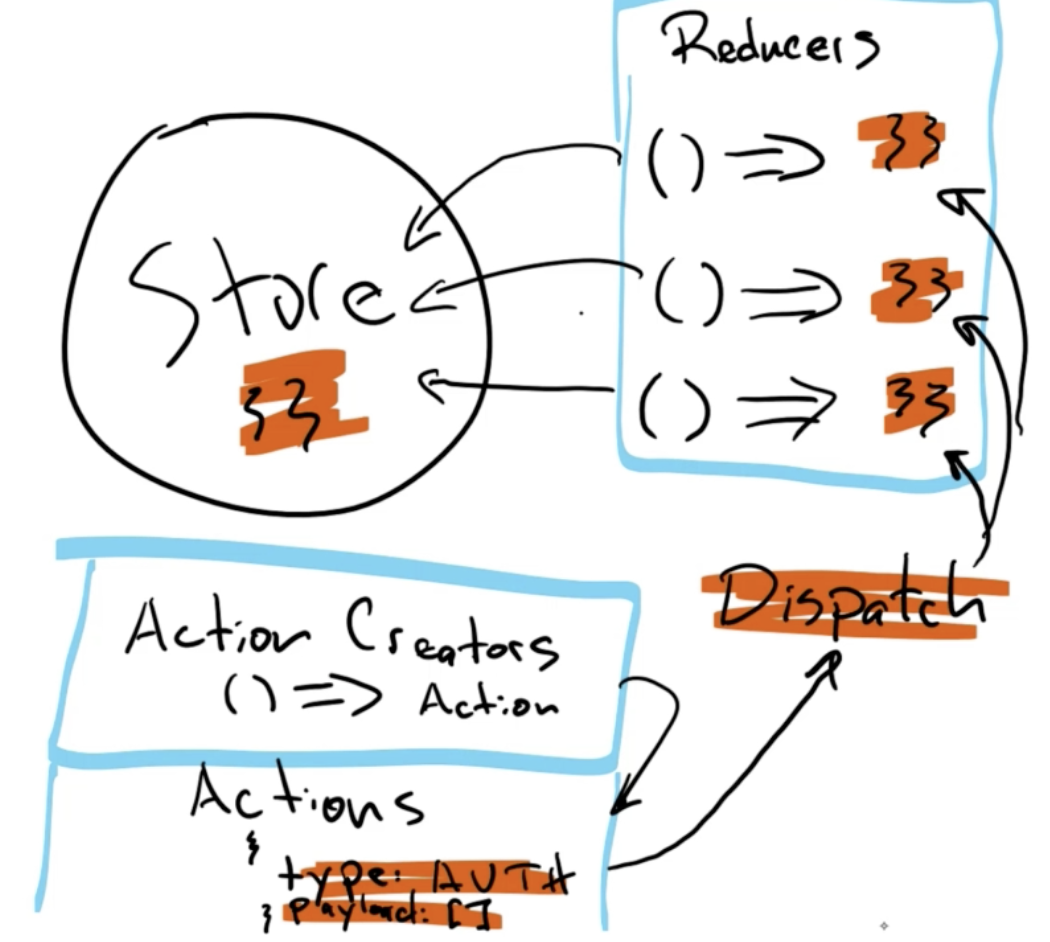 Reducers
() => {}
() => {}
() => {}
Store
{}
Dispatch
Action Creators
() => Action
Actions
{
type: AUTH
payload: []
}